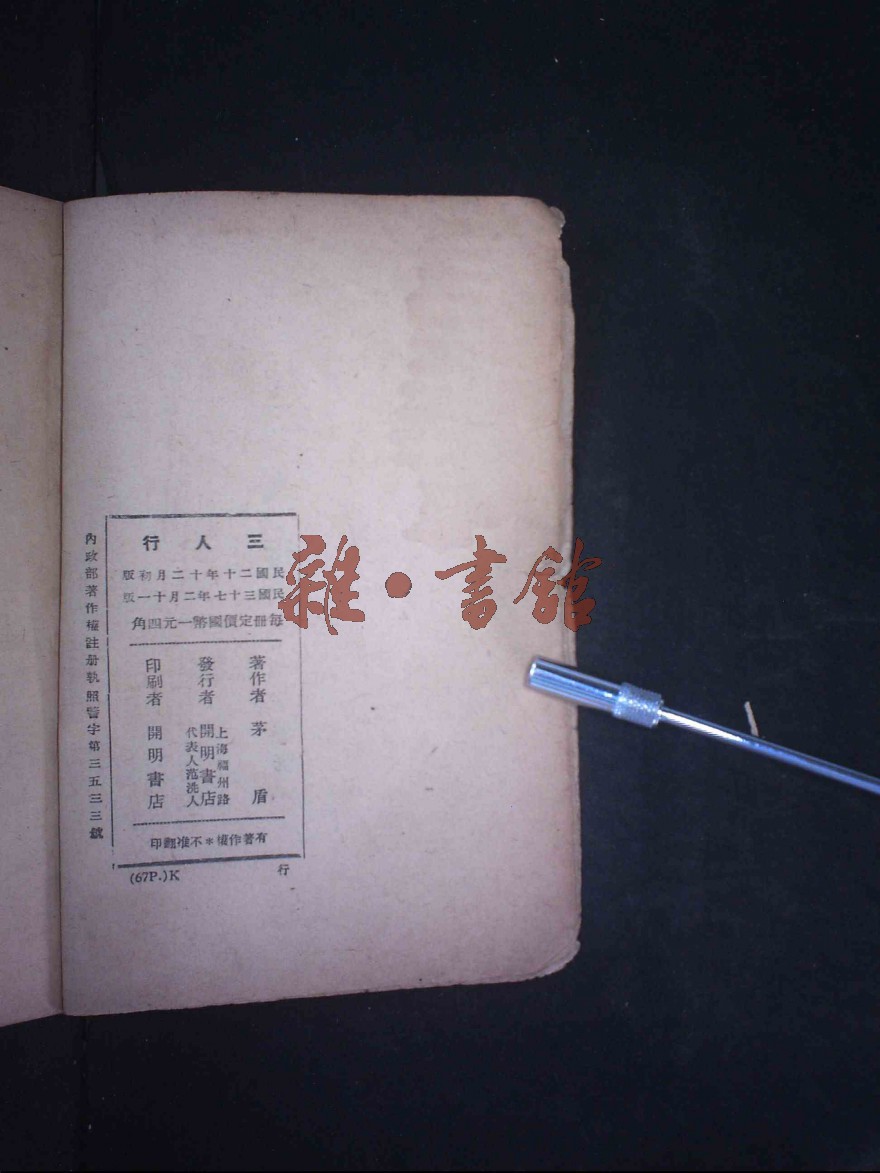 三人行
民國二十年十二月初版
民國三十七年二月十一版
每冊定價國幣一元四角
著作者 茅盾
發行者 開明書店
上海福州路
代表人范洗人
印刷者 開明書店
有著作權＊不准翻印
行
(67P.)K
內政部著作權註册執照警字第三五三三號
雜·書館